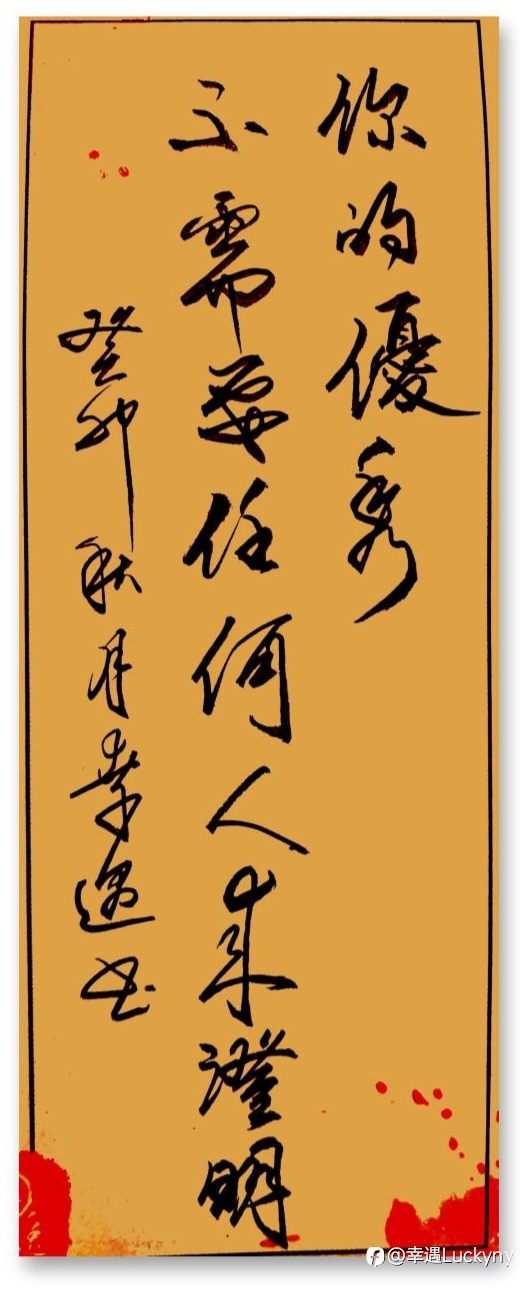 你的優秀
不需要任何人来證明
癸卯秋月幸遇书
@幸遇Luckyny